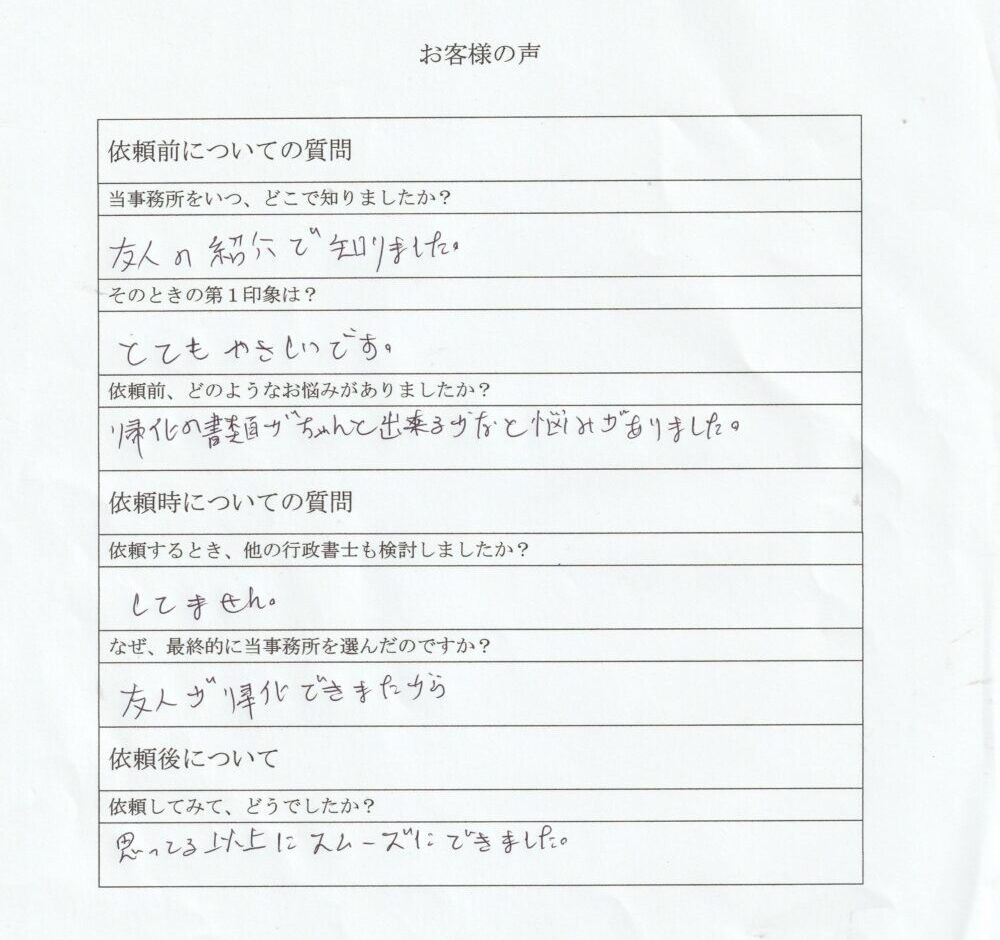 お客様の声
依頼前についての質問
当事務所をいつ、どこで知りましたか？
友人の紹介で知りました。
そのときの第１印象は？
とてもやさしいです。
依頼前、どのようなお悩みがありましたか？
帰化の書類がちゃんと出来るかなと悩みがありました。
依頼時についての質問
依頼するとき、他の行政書士も検討しましたか？
してません。
なぜ、最終的に当事務所を選んだのですか？
友人が帰化できまたから
依頼後について
依頼してみて、どうでしたか？
思ってる以上にスムーズにできました。